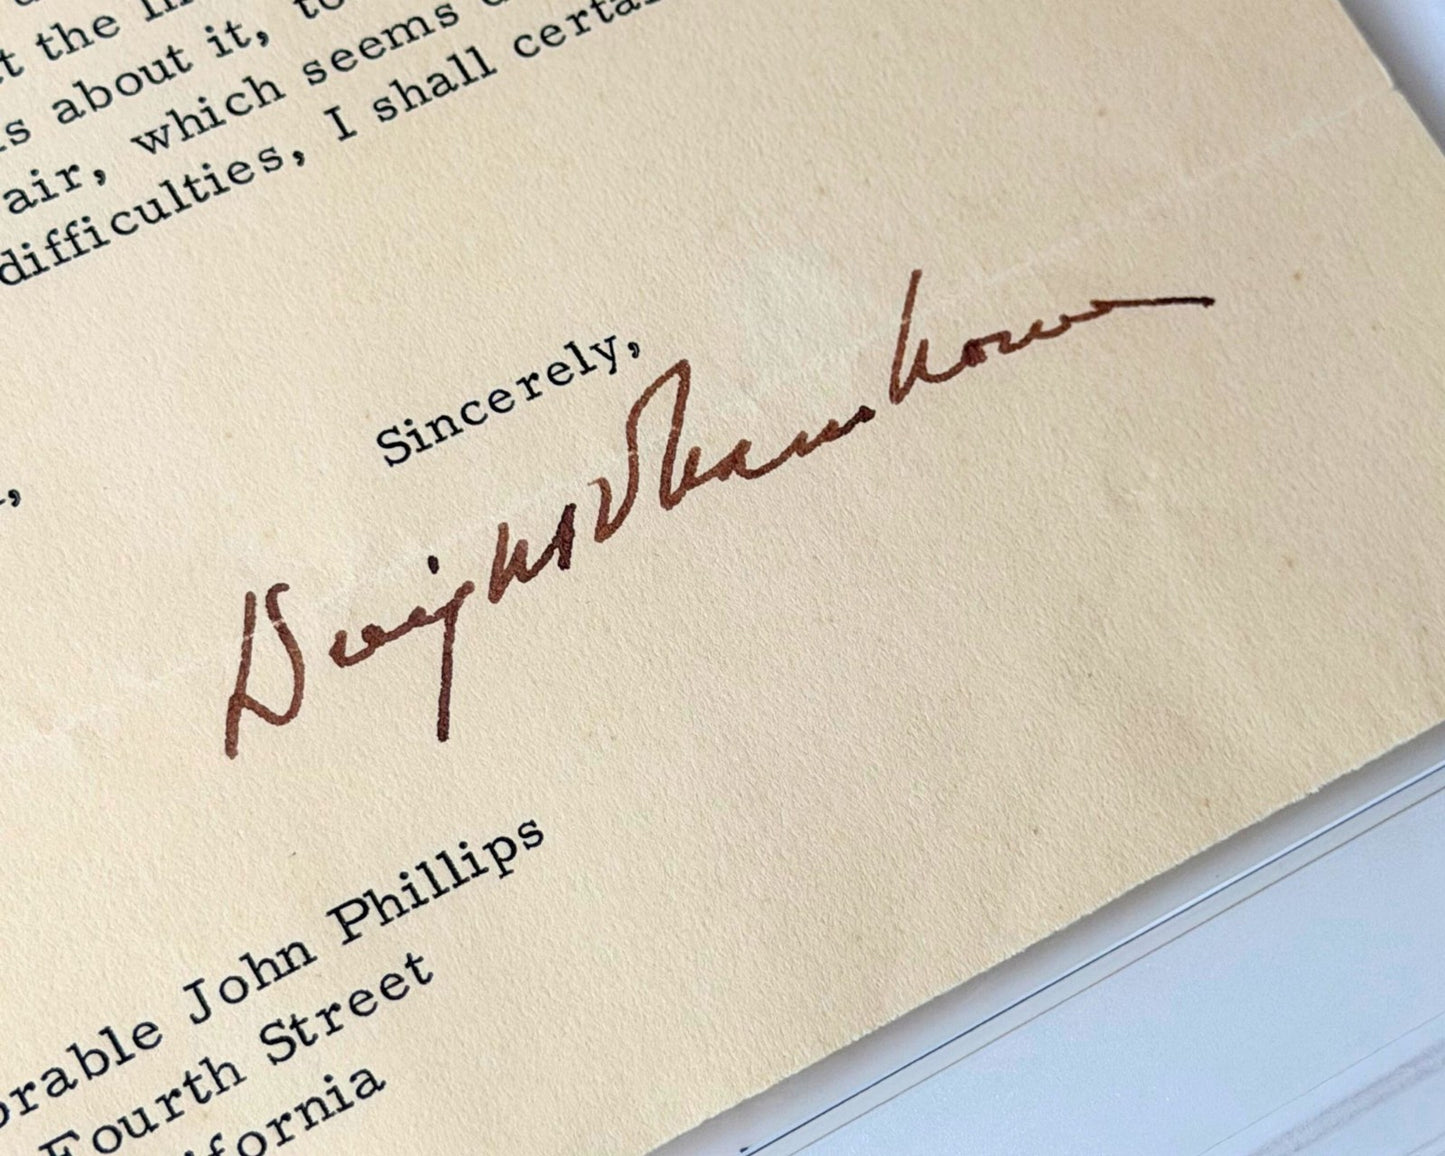 t the
s about it, to
air, which seems
difficulties, I shall certai
Sincerely,
Dwight D Eisenhower
orable John Phillips
Fourth Street
ifornia